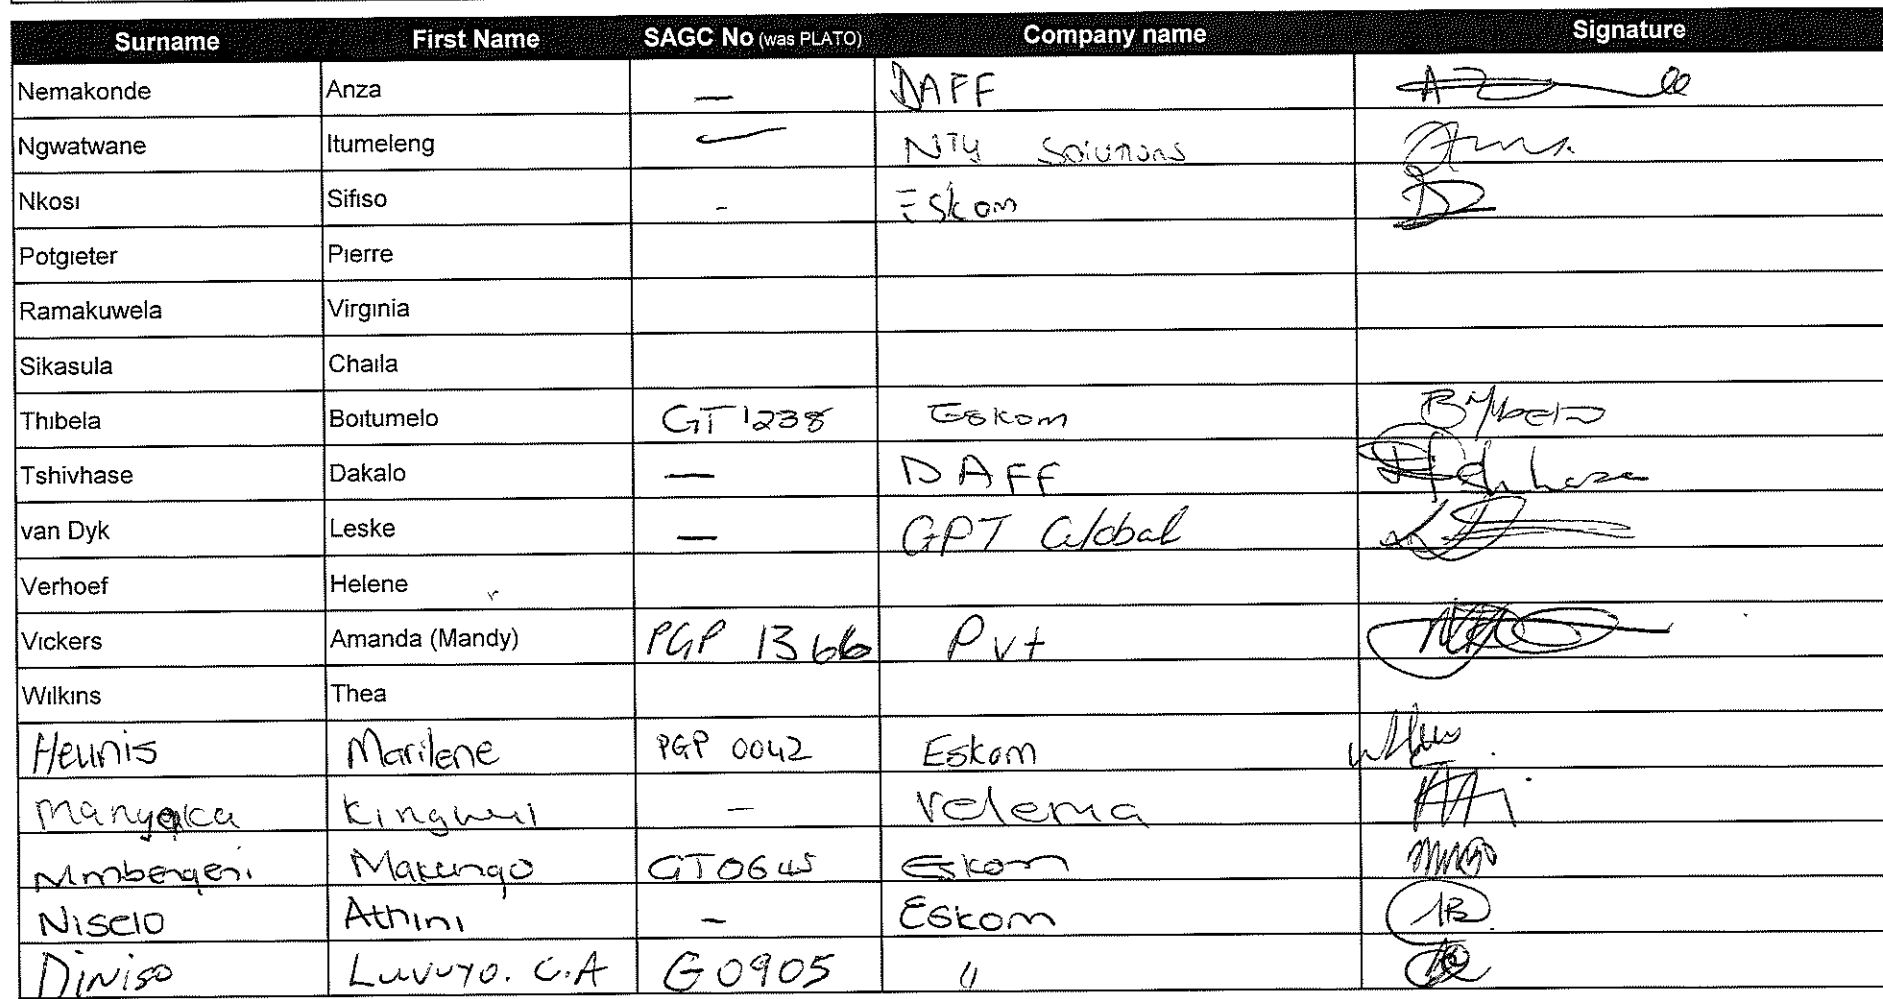 Surname First Name SAGC No (was PLATO) Company name Signature
Nemakonde Anza — DAFF
Ngwatwane Itumeleng — NTY Solutions
Nkosi Sifiso - Eskom
Potgieter Pierre
Ramakuwela Virginia
Sikasula Chaila
Thibela Boitumelo GT1238 Eskom
Tshivhase Dakalo — DAFF
van Dyk Leske — GPT Global
Verhoef Helene
Vickers Amanda (Mandy) PGP 1366 Pvt
Wilkins Thea
Heunis Marilene PGP 0042 Eskom
- Velema
Makungo Eskom
Athini - Eskom
Diniso Luvuyo. C.A G0905 "